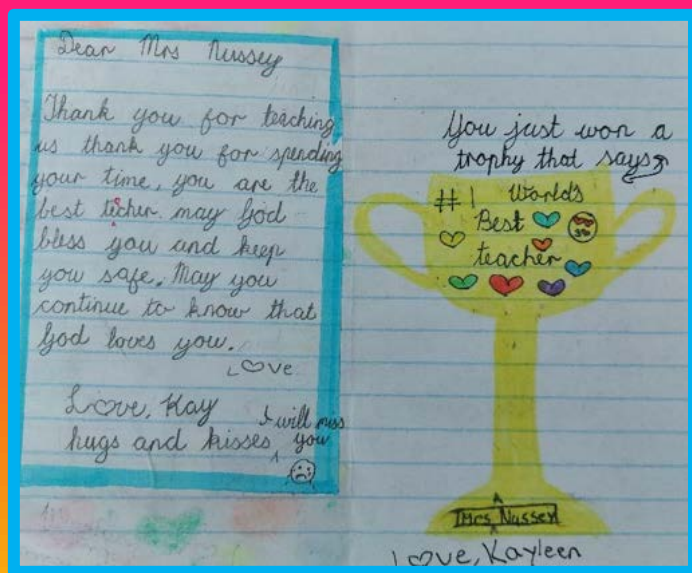 Dear Mrs Nussey
Thank you for teaching
us thank you for spending
your time, you are the
best techer. may God
bless you and keep
you safe. May you
continue to know that
God loves you.
Love
Love, Kay
I will miss
hugs and kisses, you
You just won a
trophy that says
#1 Worlds
Best
teacher
Mrs Nussey
Love, Kayleen